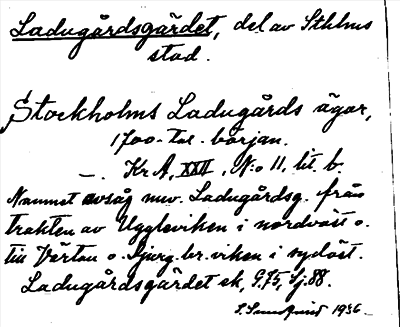 Ladugårdsgärdet, del av Sthlms
stad.
Stockholms Ladugårds ägor,
1700-tal. början.
—. Kr. A, XXII, N:o 11, lit. b.
Namnet avsåg nuv. Ladugårdsg. från
trakten av Uggleviken i nordväst o.
till Värtan o. Djurg.br.viken i sydöst.
Ladugårdsgärdet ek, G.75, Sj.88.
1936